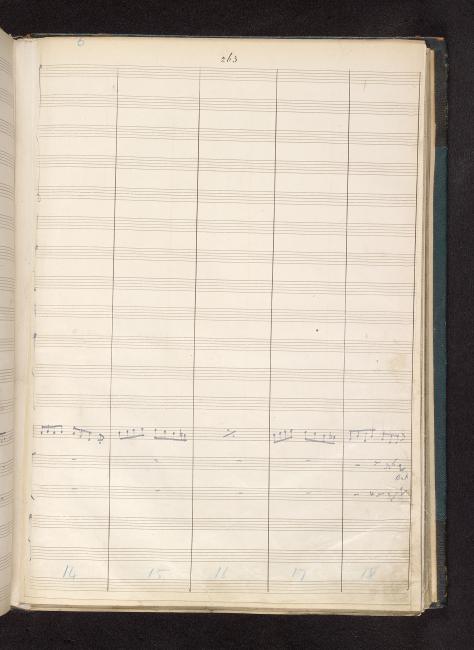 6
263
14 15 16 17 18